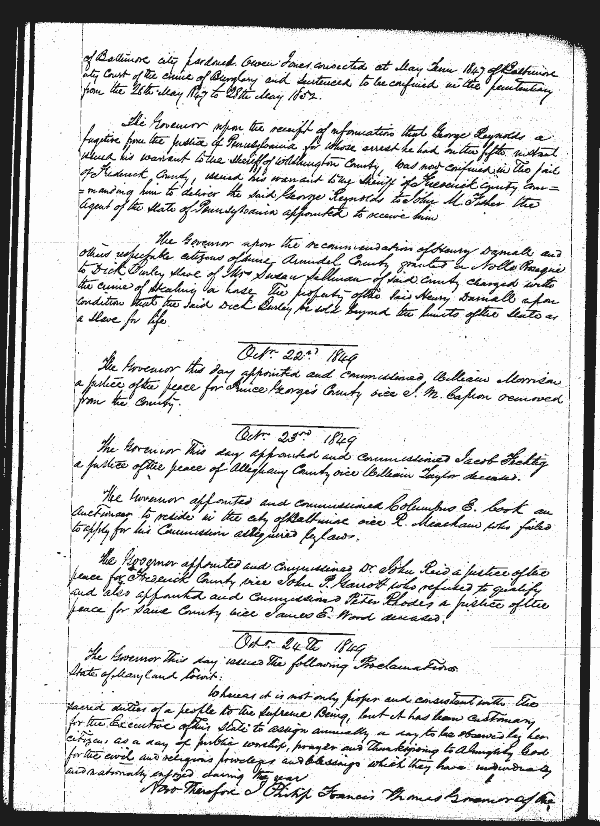 of Baltimore city pardoned Owen Jones convicted at May Term 1847 of Baltimore
city Court of the crime of Burglary and sentenced to be confined in the penitentiary
from the 28th May 1847 to 28th May 1852.
The Governor upon the receipt of information that George Reynolds a
fugitive from the justice of Pennsylvania for whose arrest he had on the 5th instant
issued his warrant to the Sheriff of Washington County, was now confined in the jail
of Frederick County, issued his warrant to the Sheriff of Frederick County com=
=manding him to deliver the said George Reynolds to John M. Fisher the
agent of the State of Pennsylvania appointed to receive him
The Governor upon the recommendation of Henry Darnall and
others respectable citizens of Anne Arundel County granted a Nolle Prosequi
to Dick Burley slave of Mrs Susan Sellman of said County charged with
the crime of stealing a horse the property of the said Henry Darnall upon
condition that the said Dick Burley be sold beyond the limits of the State as
a slave for life
Octr 22nd 1849
The Governor this day appointed and commissioned William Morrison
a justice of the peace for Prince George's County vice S. M. Capron removed
from the County.
Octr 23rd 1849
The Governor this day appointed and commissioned Jacob Fechtig
a justice of the peace of Alleghany County vice William Taylor deceased.
The Governor appointed and commissioned Columbus E. Cook an
Auctioneer to reside in the city of Baltimore vice R. Meacham who failed
to apply for his Commission as required by law.
The Governor appointed and commissioned Dr. John Reid a justice of the
peace for Frederick County vice John P. Garrott who refused to qualify
and also appointed and Commissioned Peter Rhodes a justice of the
peace for same County vice James E. Wood deceased.
Octr 24th 1849
The Governor this day issued the following Proclamation
State of Maryland to wit:
Whereas it is not only proper and consistent with the
sacred duties of a people to the Supreme Being, but it has been customary
for the Executive of this State to assign annually a day to be observed by her
citizens as a day of public worship, prayer and thanksgiving to Almighty God
for the civil and religious privileges and blessings which they have individually
and nationally enjoyed during the year
Now Therefore I Philip Francis Thomas Governor of the